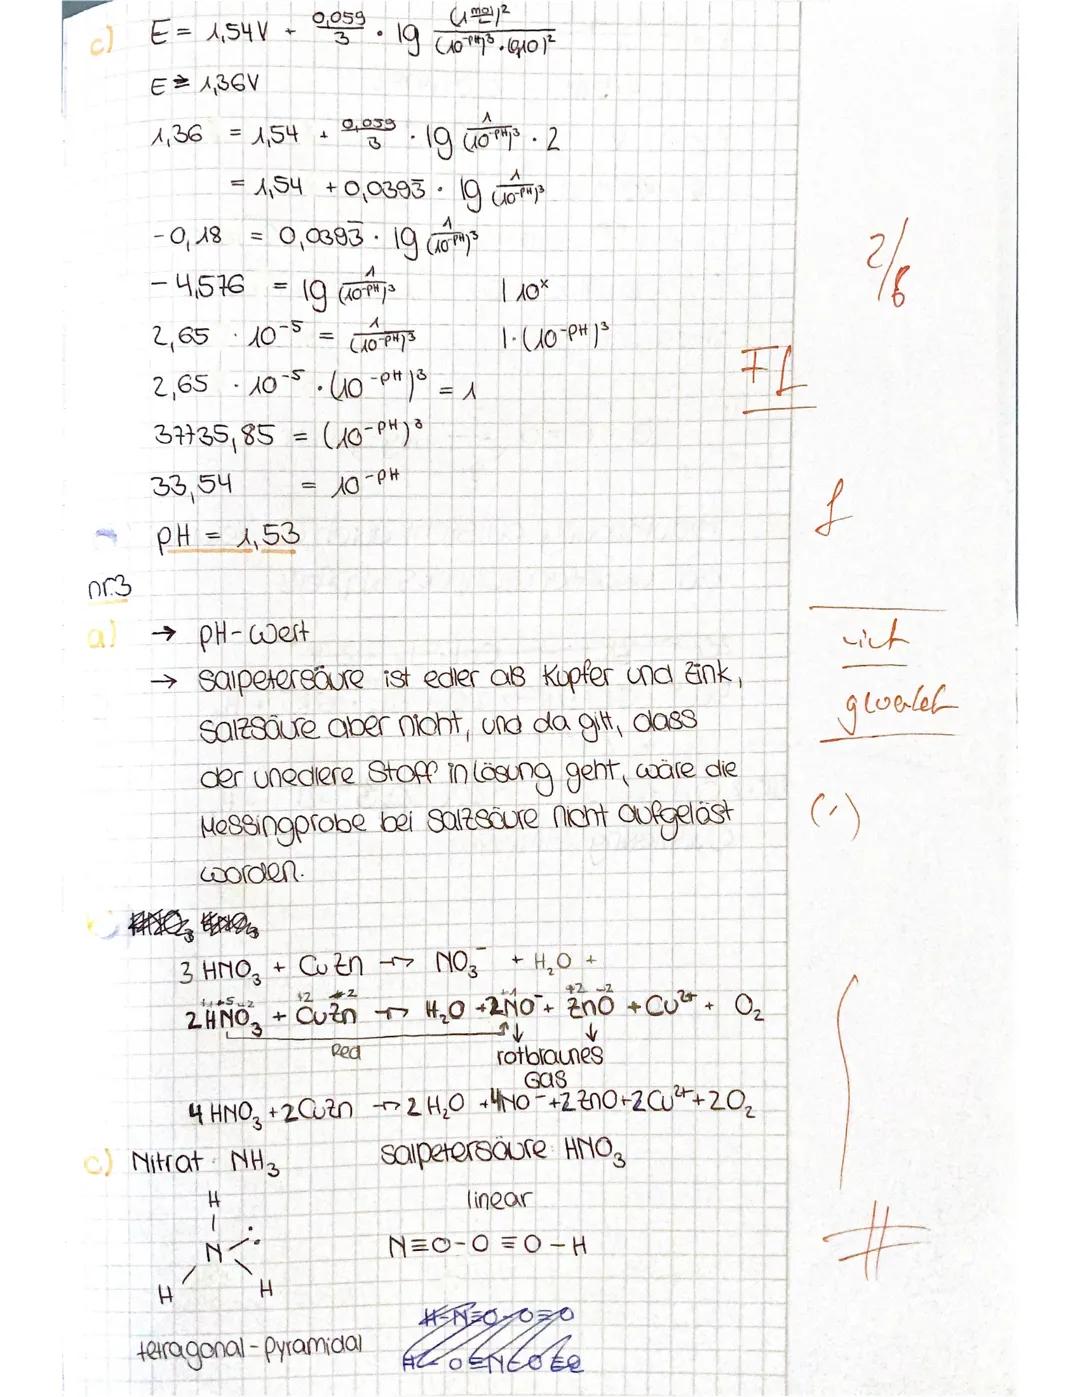 c) E = 1,54V + 0,059/3 · lg (1 mol/L)²/((10^-PH)³·(0,10)²
E ≥ 1,36V
1,36 = 1,54 + 0,059/3 · lg 1/(10^-PH)³ · 2
= 1,54 + 0,0393̄ · lg 1/(10^-PH)³
-0,18 = 0,0393̄ · lg 1/(10^-PH)³
2/6
-4,576 = lg 1/(10^-PH)³ | 10^x
2,65 · 10^-5 = 1/(10^-PH)³ | · (10^-PH)³
FL
2,65 · 10^-5 · (10^-PH)³ = 1
37735,85 = (10^-PH)³
33,54 = 10^-PH
f
pH = 1,53
nr.3
a) → pH-Wert
→ Salpetersäure ist edler als Kupfer und Zink,
Salzsäure aber nicht, und da gilt, dass
der unedlere Stoff in Lösung geht, wäre die
Messingprobe bei Salzsäure nicht aufgeläst
worden.
(·)
3 HNO₃ + CuZn → NO₃⁻ + H₂O +
+1 +5 -2 +2 +2 +2 -2
2HNO₃ + CuZn → H₂O + 2NO⁻ + ZnO + Cu²⁺ + O₂
Red ↓ ↓
rotbraunes
Gas
4 HNO₃ + 2CuZn → 2 H₂O + 4NO⁻ + 2ZnO + 2Cu²⁺ + 2O₂
c) Nitrat NH₃ Salpetersäure HNO₃
H linear
N N≡O-O≡O-H
H H
tetragonal-pyramidal